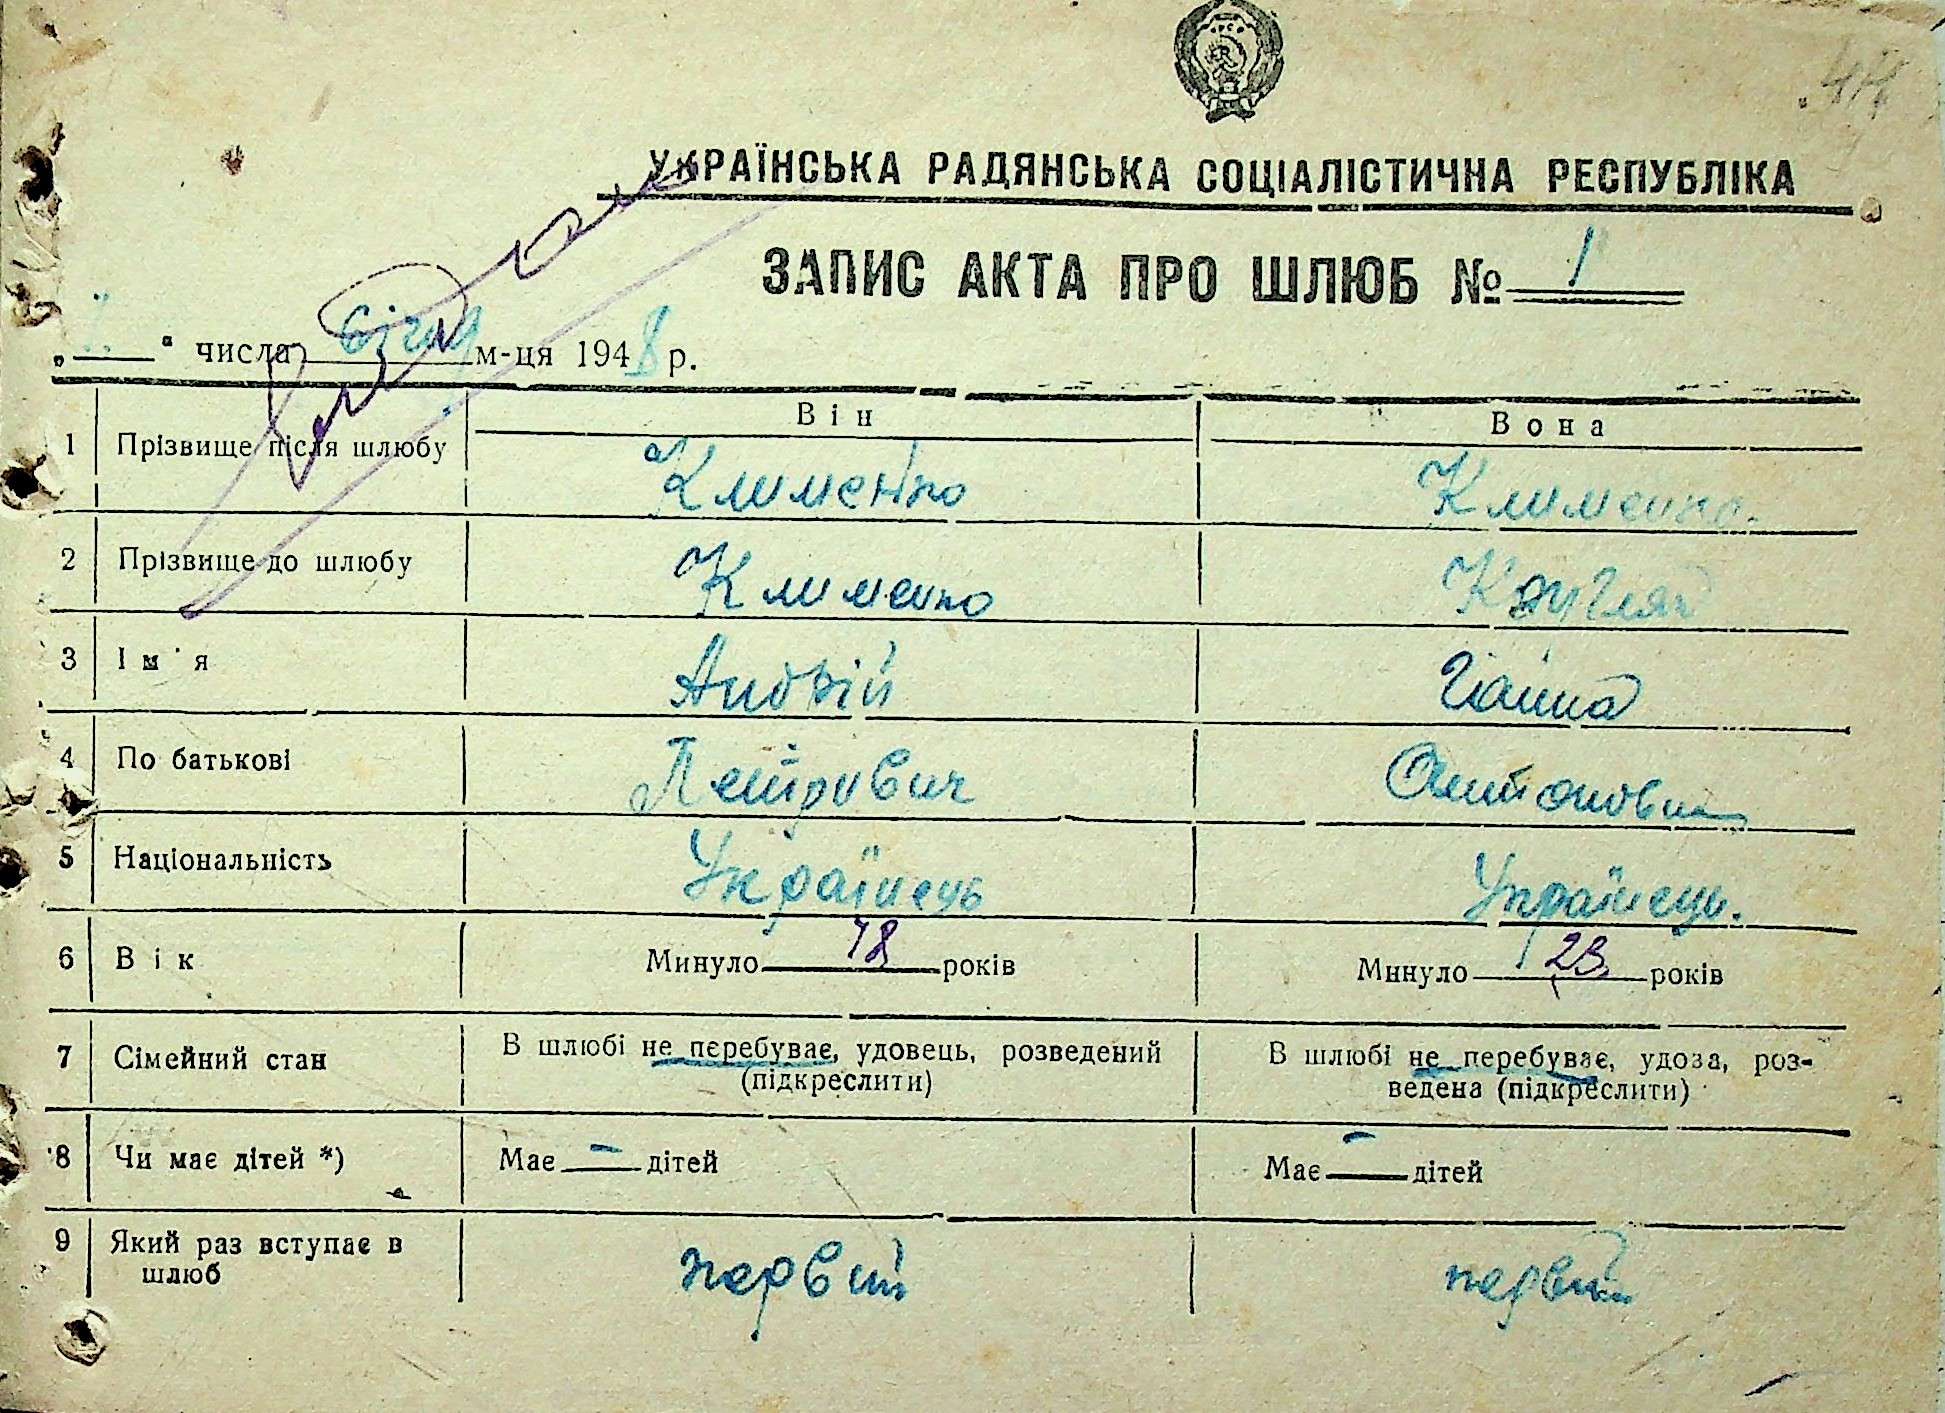 44
УКРАЇНСЬКА РАДЯНСЬКА СОЦІАЛІСТИЧНА РЕСПУБЛІКА
ЗАПИС АКТА ПРО ШЛЮБ № 1
„ “ числа січня м-ця 1948 р.
Він Вона
1 Прізвище після шлюбу Клименко Клименко.
2 Прізвище до шлюбу Клименко Кругляк
3 Ім'я Андрій Ганна
4 По батькові Петрович Антоновна
5 Національність Українець Українець.
6 Вік Минуло 18 років Минуло 23. років
7 Сімейний стан В шлюбі не перебуває, удовець, розведений (підкреслити) В шлюбі не перебуває, удова, роз-
ведена (підкреслити)
8 Чи має дітей *) Має — дітей Має — дітей
9 Який раз вступає в
шлюб первий первий